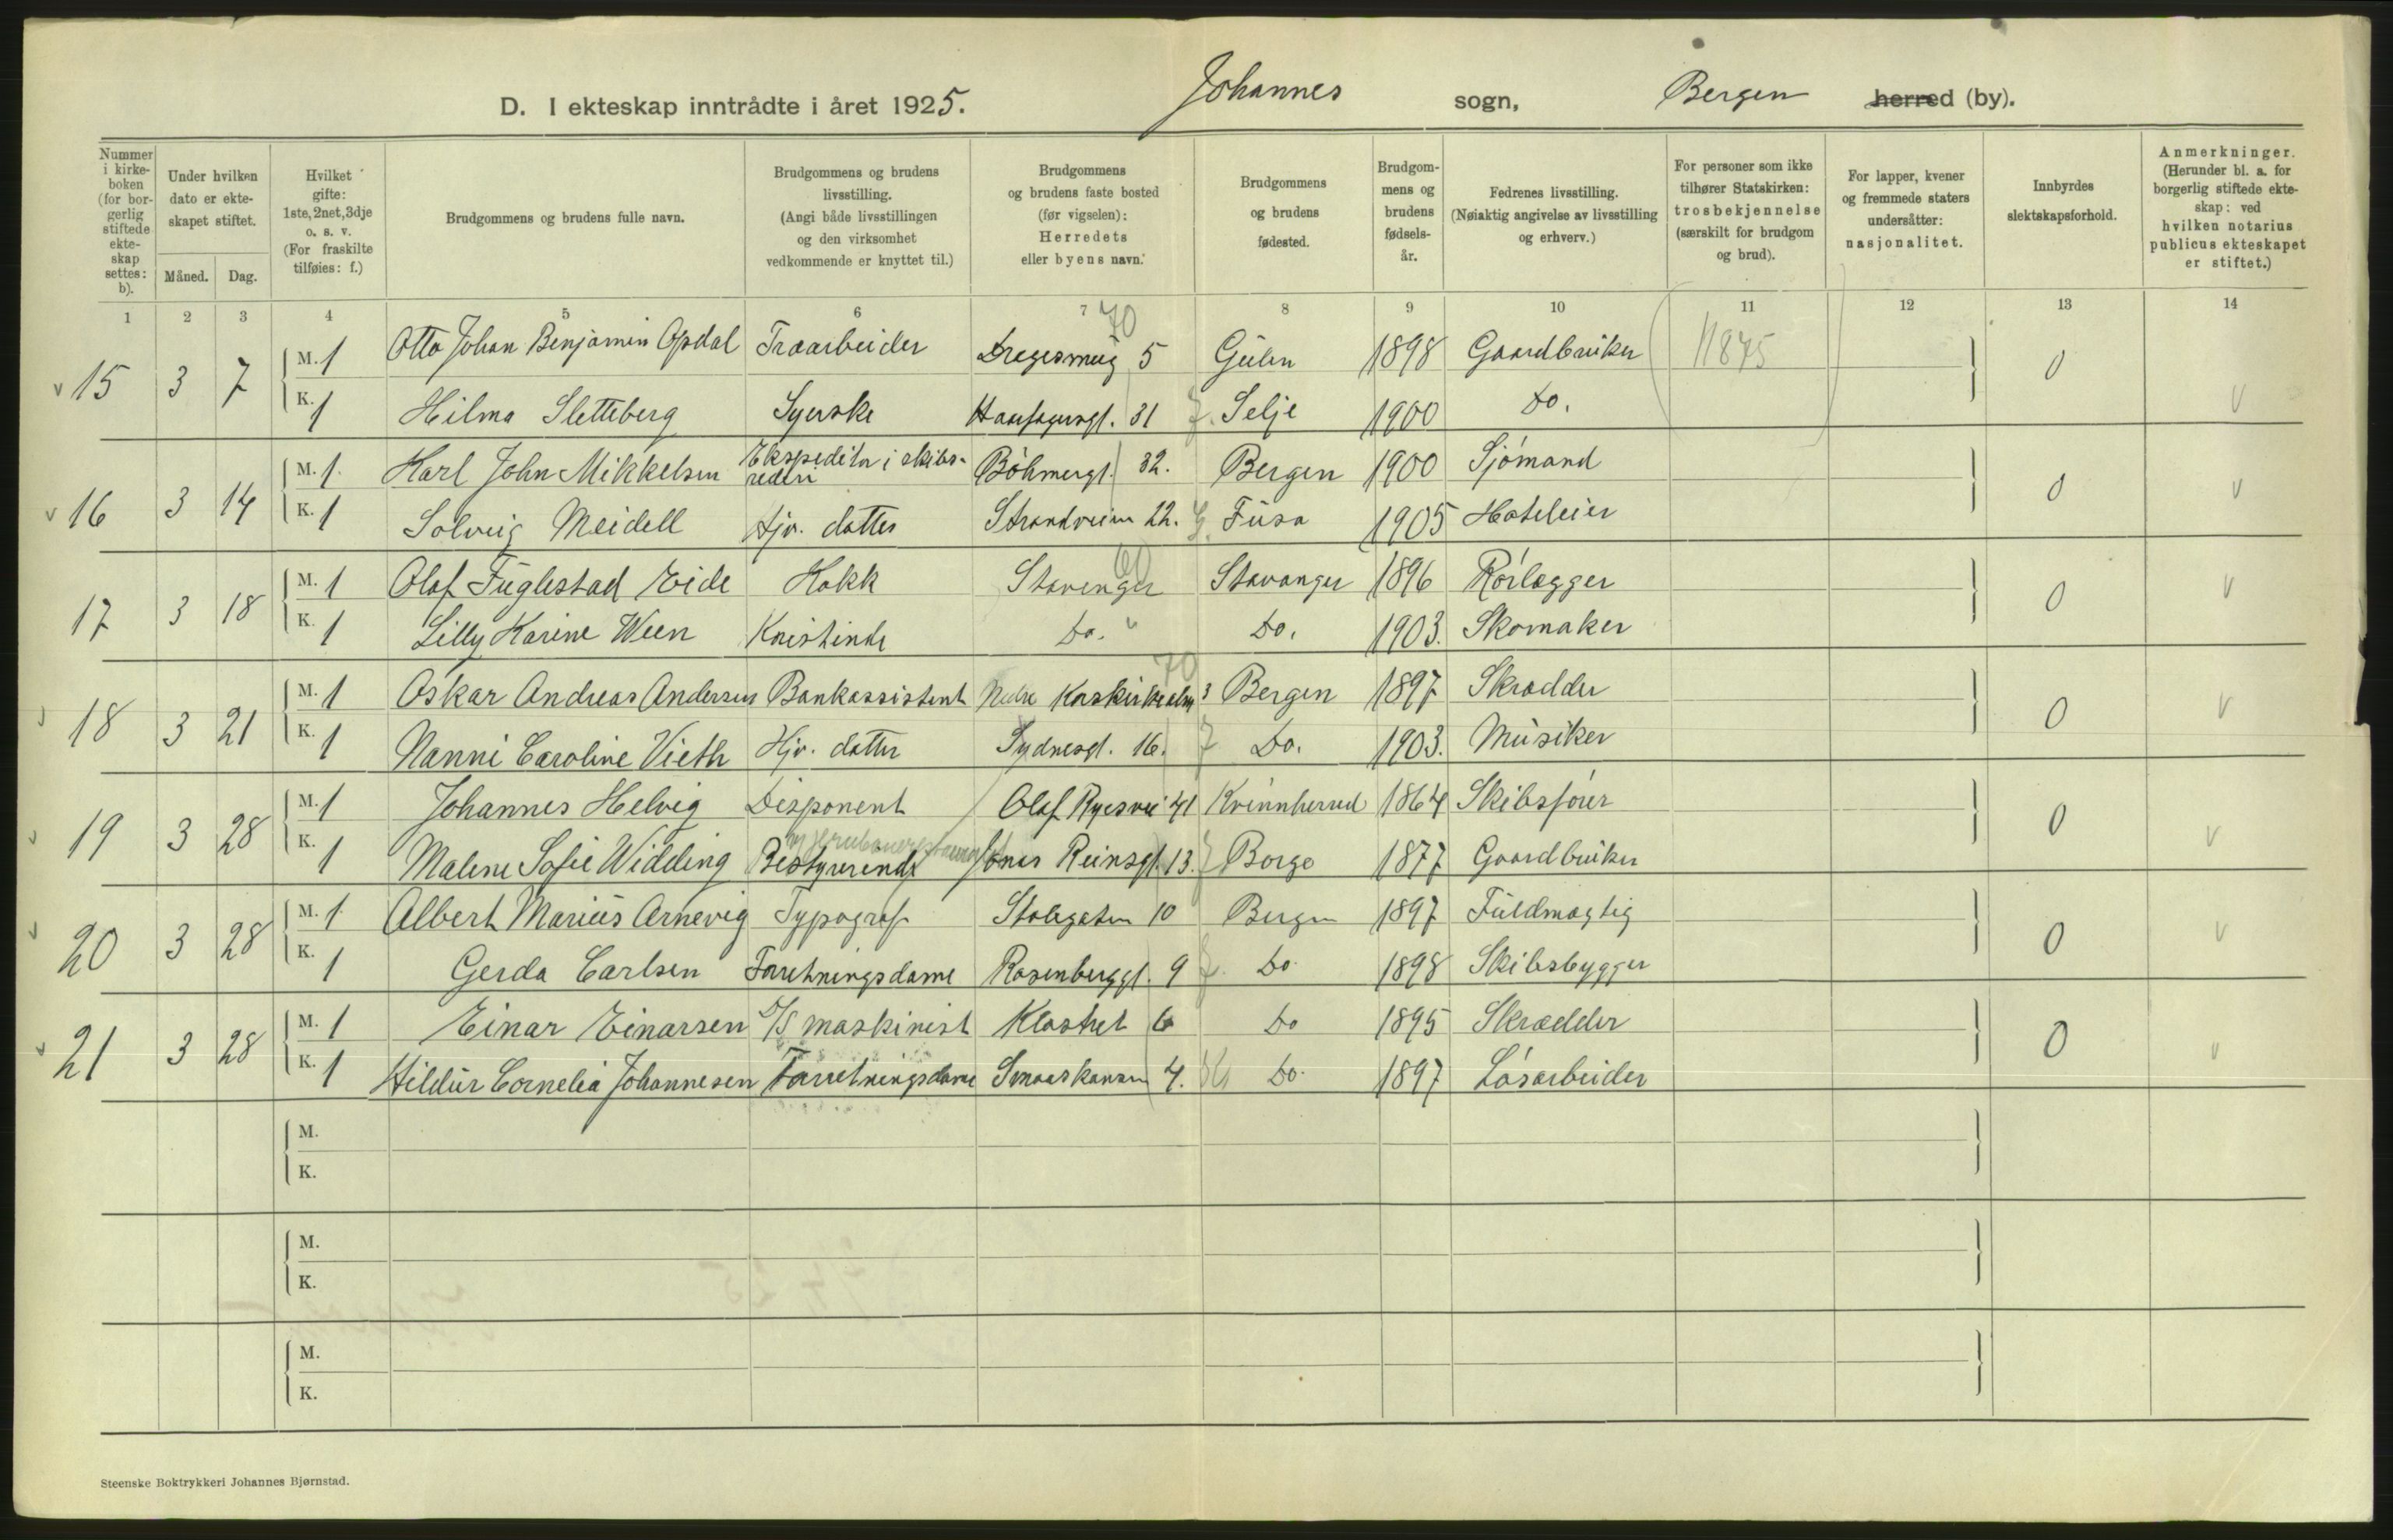 D. I ekteskap inntrådte i året 1925. Johannes sogn, Bergen herred (by).
Nummer i kirkeboken (for borgerlig stiftede ekteskap settes: b).
Under hvilken dato er ekteskapet stiftet.
Måned. Dag.
Hvilket gifte: 1ste, 2net, 3dje o. s. v. (For fraskilte tilføies: f.)
Brudgommens og brudens fulle navn.
Brudgommens og brudens livsstilling. (Angi både livsstillingen og den virksomhet vedkommende er knyttet til.)
Brudgommens og brudens faste bosted (før vigselen): Herredets eller byens navn.
Brudgommens og brudens fødested.
Brudgommens og brudens fødselsår.
Fedrenes livsstilling. (Nøiaktig angivelse av livsstilling og erhverv.)
For personer som ikke tilhører Statskirken: trosbekjennelse (særskilt for brudgom og brud).
For lapper, kvener og fremmede staters undersåtter: nasjonalitet.
Innbyrdes slektskapsforhold.
Anmerkninger. (Herunder bl. a. for borgerlig stiftede ekteskap: ved hvilken notarius publicus ekteskapet er stiftet.)
1 2 3 4 5 6 7 8 9 10 11 12 13 14
70
15 3 7 M. 1 Otto Johan Benjamin Opdal Træarbeider Dregesmug 5 Gulen 1898 Gaardbruker 11875 0
K. 1 Hilma Sletteberg Syerske Haarfagersgt. 31 Selje 1900 Do. v
16 3 14 M. 1 Karl John Mikkelsen Ekspeditør i skibsrederi Böhmergt. 32. Bergen 1900 Sjømand 0 v
K. 1 Solveig Meidell Hjv. datter Strandveien 22. Fusa 1905 Hoteleier
60
17 3 18 M. 1 Olaf Fuglestad Eide Kokk Stavanger Stavanger 1896 Rørlægger 0 v
K. 1 Lilly KarineWeen Do. Do. 1903. Skomaker
70
18 3 21 M. 1 Oskar Andreas Andersen Bankassistent Nedre 3 Bergen 1897 Skrædder 0 v
K. 1 Nanni Caroline Vieth Hjv. datter Sydnesgt. 16. Do. 1903. Musiker
19 3 28 M. 1 Johannes Helvig Disponent Olaf Ryesvei 41 Kvinnherred 1864 Skibsfører 0 v
K. 1 Malene Sofie Widding Bestyrerinde Jonas Reinsgt. 13. Borge 1877 Gaardbruker
20 3 28 M. 1 Albert Marius Arnevig Typograf Stølegaten 10 Bergen 1897 Fuldmægtig 0 v
K. 1 Gerda Carlsen Forretningsdame Rosenberggt. 9 Do. 1898 Skibsbygger
21 3 28 M. 1 Einar Einarsen D/S maskinist Klostret 6 Do 1895 Skrædder 0 v
K. 1 Hildur Cornelia Johannesen Forretningsdame Smaaskansen 4. Do. 1897 Løsarbeider
M.
K.
M.
K.
M.
K.
Steenske Boktrykkeri Johannes Bjørnstad.